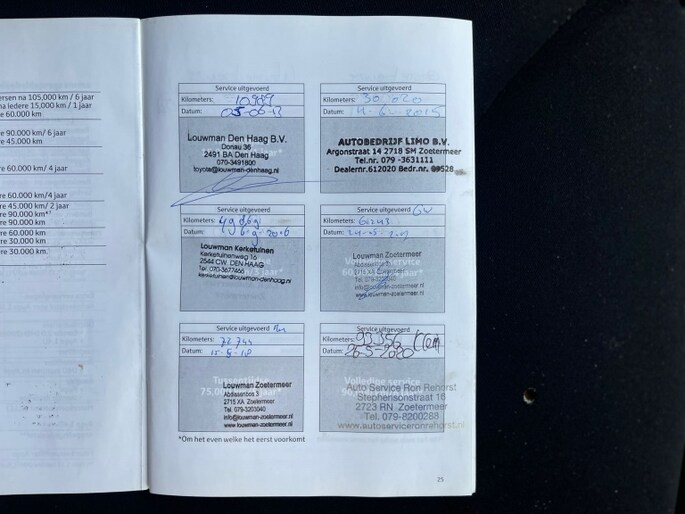 ersen na 105,000 km / 6 jaar
na Iedere 15,000 km / 1 jaar
re 60.000 km
re 90.000 km/ 6 jaar
re 45.000 km
re 60.000 km/ 4 jaar
re 60.000 km/4 jaar
re 45.000 km/ 2 jaar
re 90.000 km*
re 90.000 km
re 60.000 km
re 30.000 km
re 30.000 km.
Service uitgevoerd
Kilometers: 10989
Datum: 05-06-13
Louwman Den Haag B.V.
Donau 36
2491 BA Den Haag
070-3491800
toyota@louwman-denhaag.nl
Service uitgevoerd
Kilometers: 30.020
Datum: 4-6-2015
AUTOBEDRIJF LIMO B.V.
Argonstraat 14 2718 SM Zoetermeer
Tel.nr. 079 -3631111
Dealernr.612020 Bedr.nr. 09528
Service uitgevoerd
Kilometers:
Datum:
Louwman Kerketuinen
Kerketuinenweg 16
2544 CW. DEN HAAG
Tel. 070-3677466
kerketuinen@louwman-denhaag.nl
Service uitgevoerd
Kilometers:
Datum:
Louwman Zoetermeer
info@louwman-zoetermeer.nl
www.louwman-zoetermeer.nl
Service uitgevoerd
Kilometers: 72744
Datum:
75,000
Louwman Zoetermeer
Abdissenbos 3
2715 XA Zoetermeer
Tel. 079-3203040
info@louwman-zoetermeer.nl
www.louwman-zoetermeer.nl
Service uitgevoerd
Kilometers: 93356
Datum: 26-5-2020
Volledige service
Auto Service Ron Rehorst
Stephensonstraat 16
2723 RN Zoetermeer
Tel. 079-8200288
www.autoserviceronrehorst.nl
*Om het even welke het eerst voorkomt
25